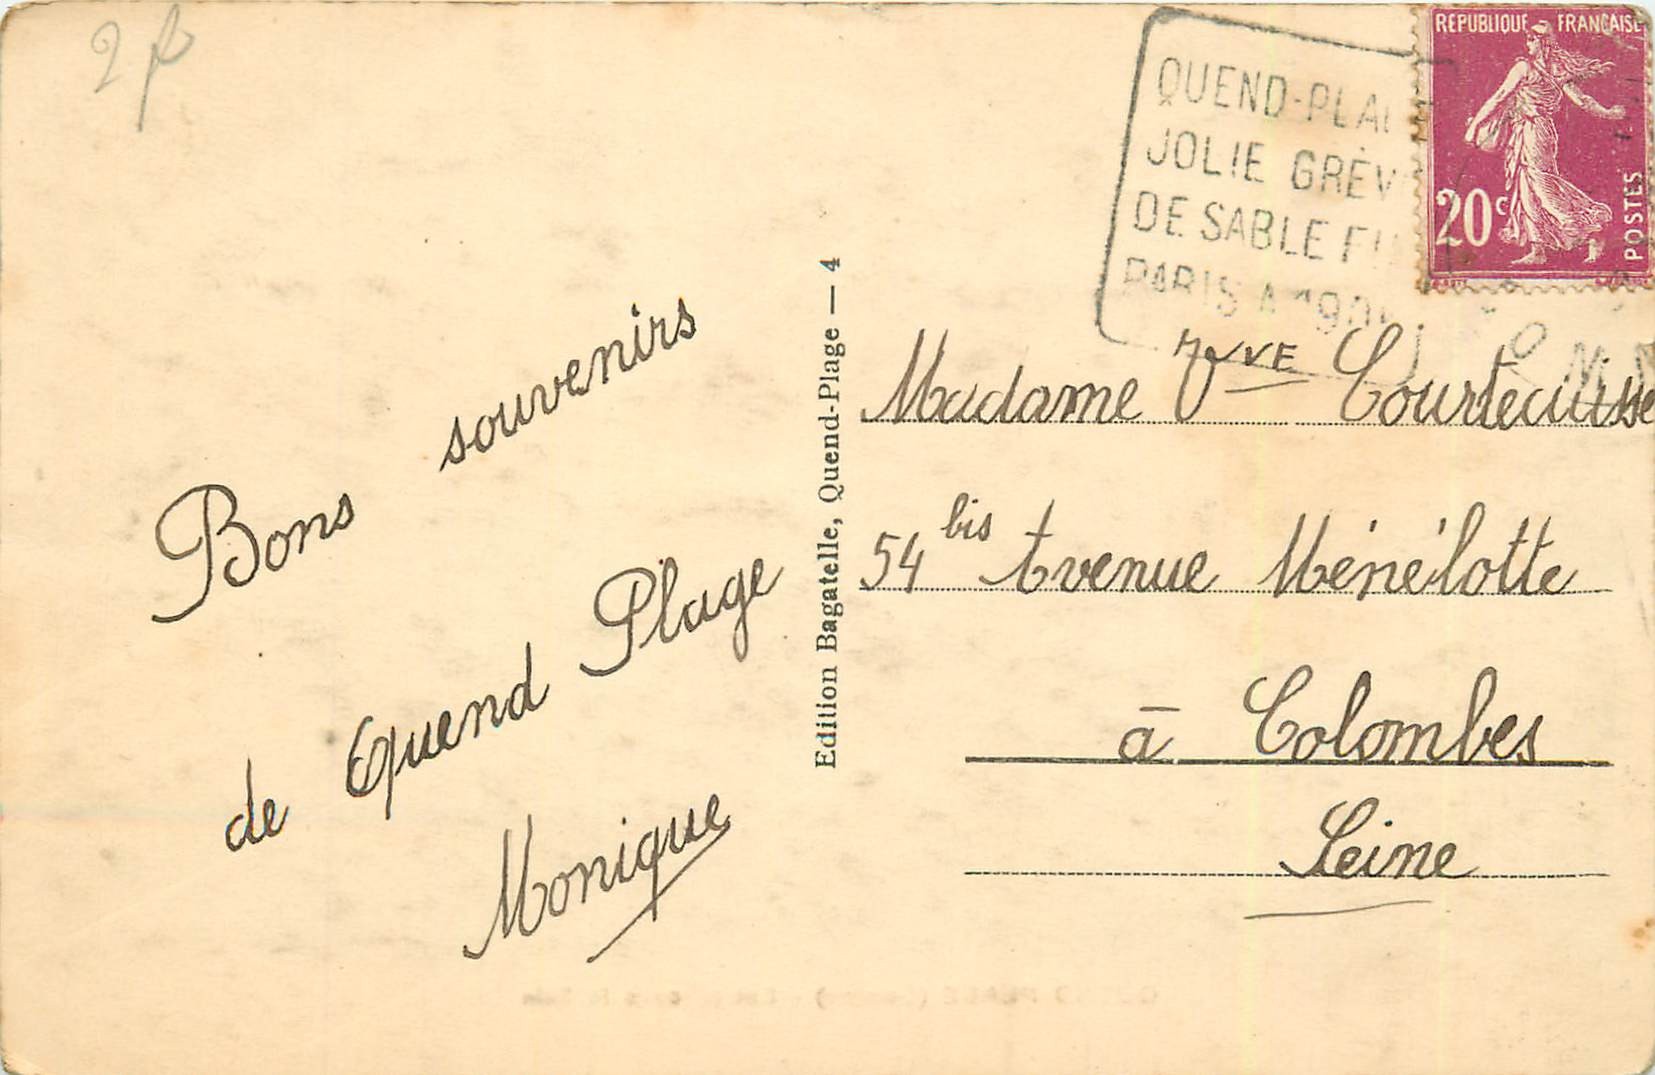 2 f
QUEND-PLA
JOLIE GRÈV
DE SABLE FI
PARIS A
REPUBLIQUE FRANÇAISE
20c
POSTES
Bons souvenirs
de Quend Plage
Monique
Edition Bagatelle, Quend-Plage — 4
Madame Vve Courtecuisse
54 bis Avenue Ménélotte
à Colombes
Seine